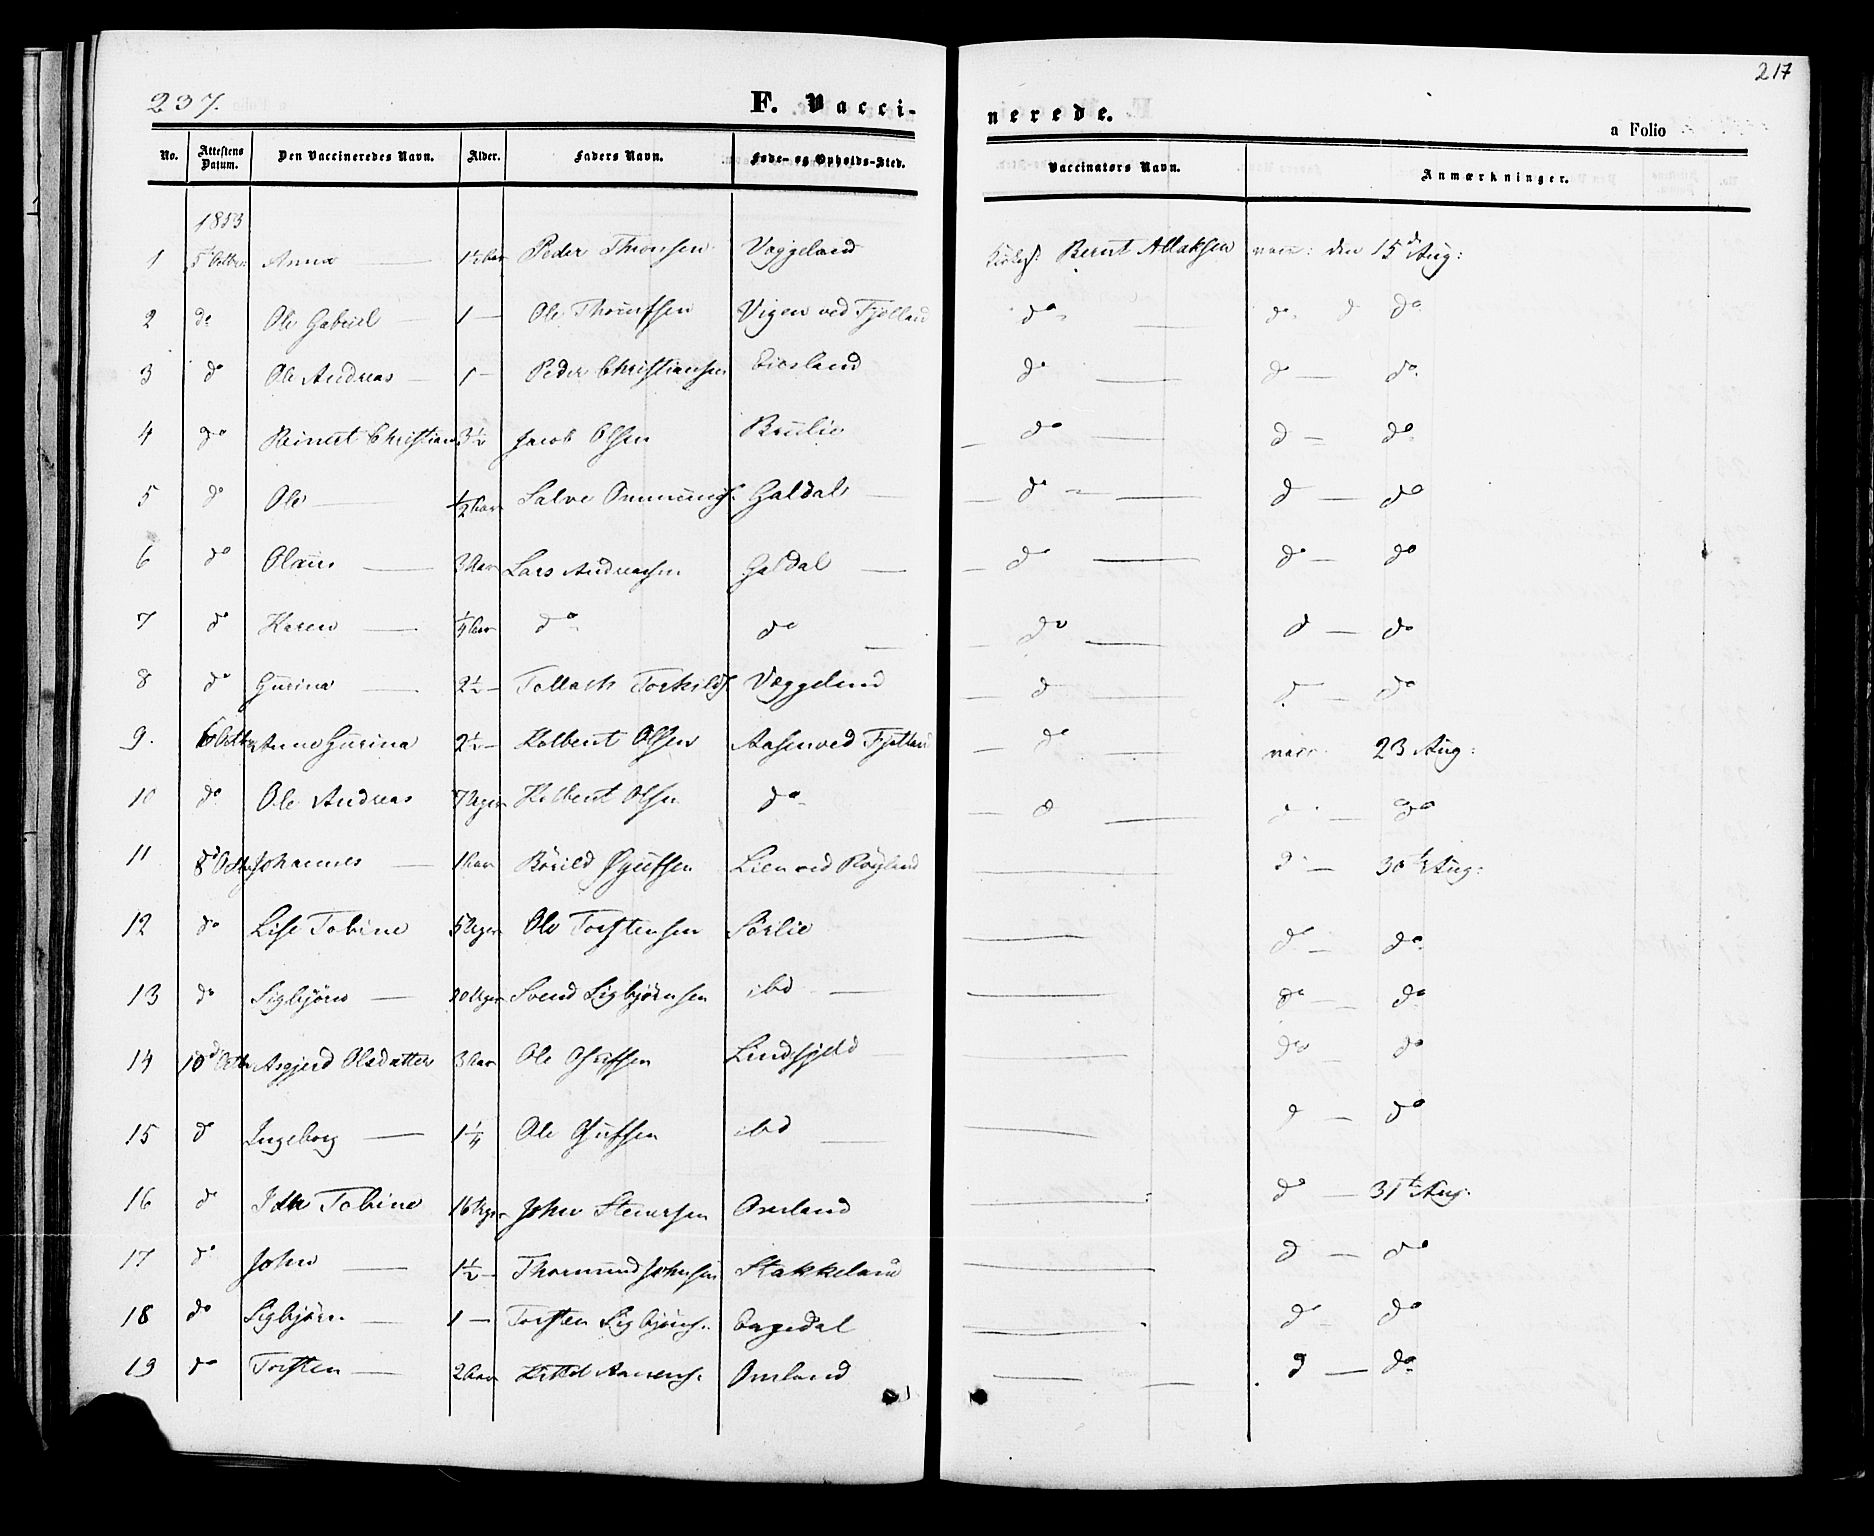 237.
217
F. Vaccinerede.
a Folio
No. Attestens Datum. Den Vaccineredes Navn. Alder. Faders Navn. Føde- og Opholds-Sted. Vaccinators Navn. Anmærkninger.
1853
1 5t Octbr: Anna — 1½ Aar Peder Thorsen Væggeland Bernt Aslaksen vacc: den 15d Aug:
2 do Ole Gabriel — 1 — Ole Vigen ved Fjotland do — do d do
3 do Ole Andreas — 1 — Peder Christiansen Eiesland do — do — do
4 do Reinert Christian 3½ Jacob Olsen — do — d — do
5 do Ole — ½ Aar Salve Ommunds. Galdals — — do — d — do
6 do Olaus — 3 Aar Lars Andreassen Galdal — — do — do — do
7 do Karen — ¼ Aar do do — do — d — do
8 do Gurina — 2½ — Tollach Torkilds. Væggeland — d — d — do
9. 6 Octbr Anne Gurina 2½ — Kolbent Olsen Aasen ved Fjotland — do — vacc: 23 Aug:
10 do Ole Andreas 7 Uger Kolbent Olsen do — d — d — do
11 8d Octbr Johannes — 1 Aar Lien ved Røyland — d — 30te Aug:
12 do Lise Tobine 5 Uger Ole Torstensen Sørlie — do — do
13 do Sigbjørn — Uger Svend Sigbjørnsen ibd — — do — do
14 10d Octbr Asgjerd Olsdatter 3 Aar Ole — do — do
15 d Ingeborg — 1¼ Ole ibd — — d — do
16 do Tobine 16 Uger John Omland — do — 31te Aug:
17 do John — 1½ — Thormund Johnsen Stakkeland — d — do
18 do Sigbjørn — 1 — Torsten Sigbjørns. — do — do
19 do Torsten — 2 Aar Omland — d — do